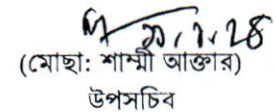 (মোছা: শাম্মী আক্তার)
উপসচিব